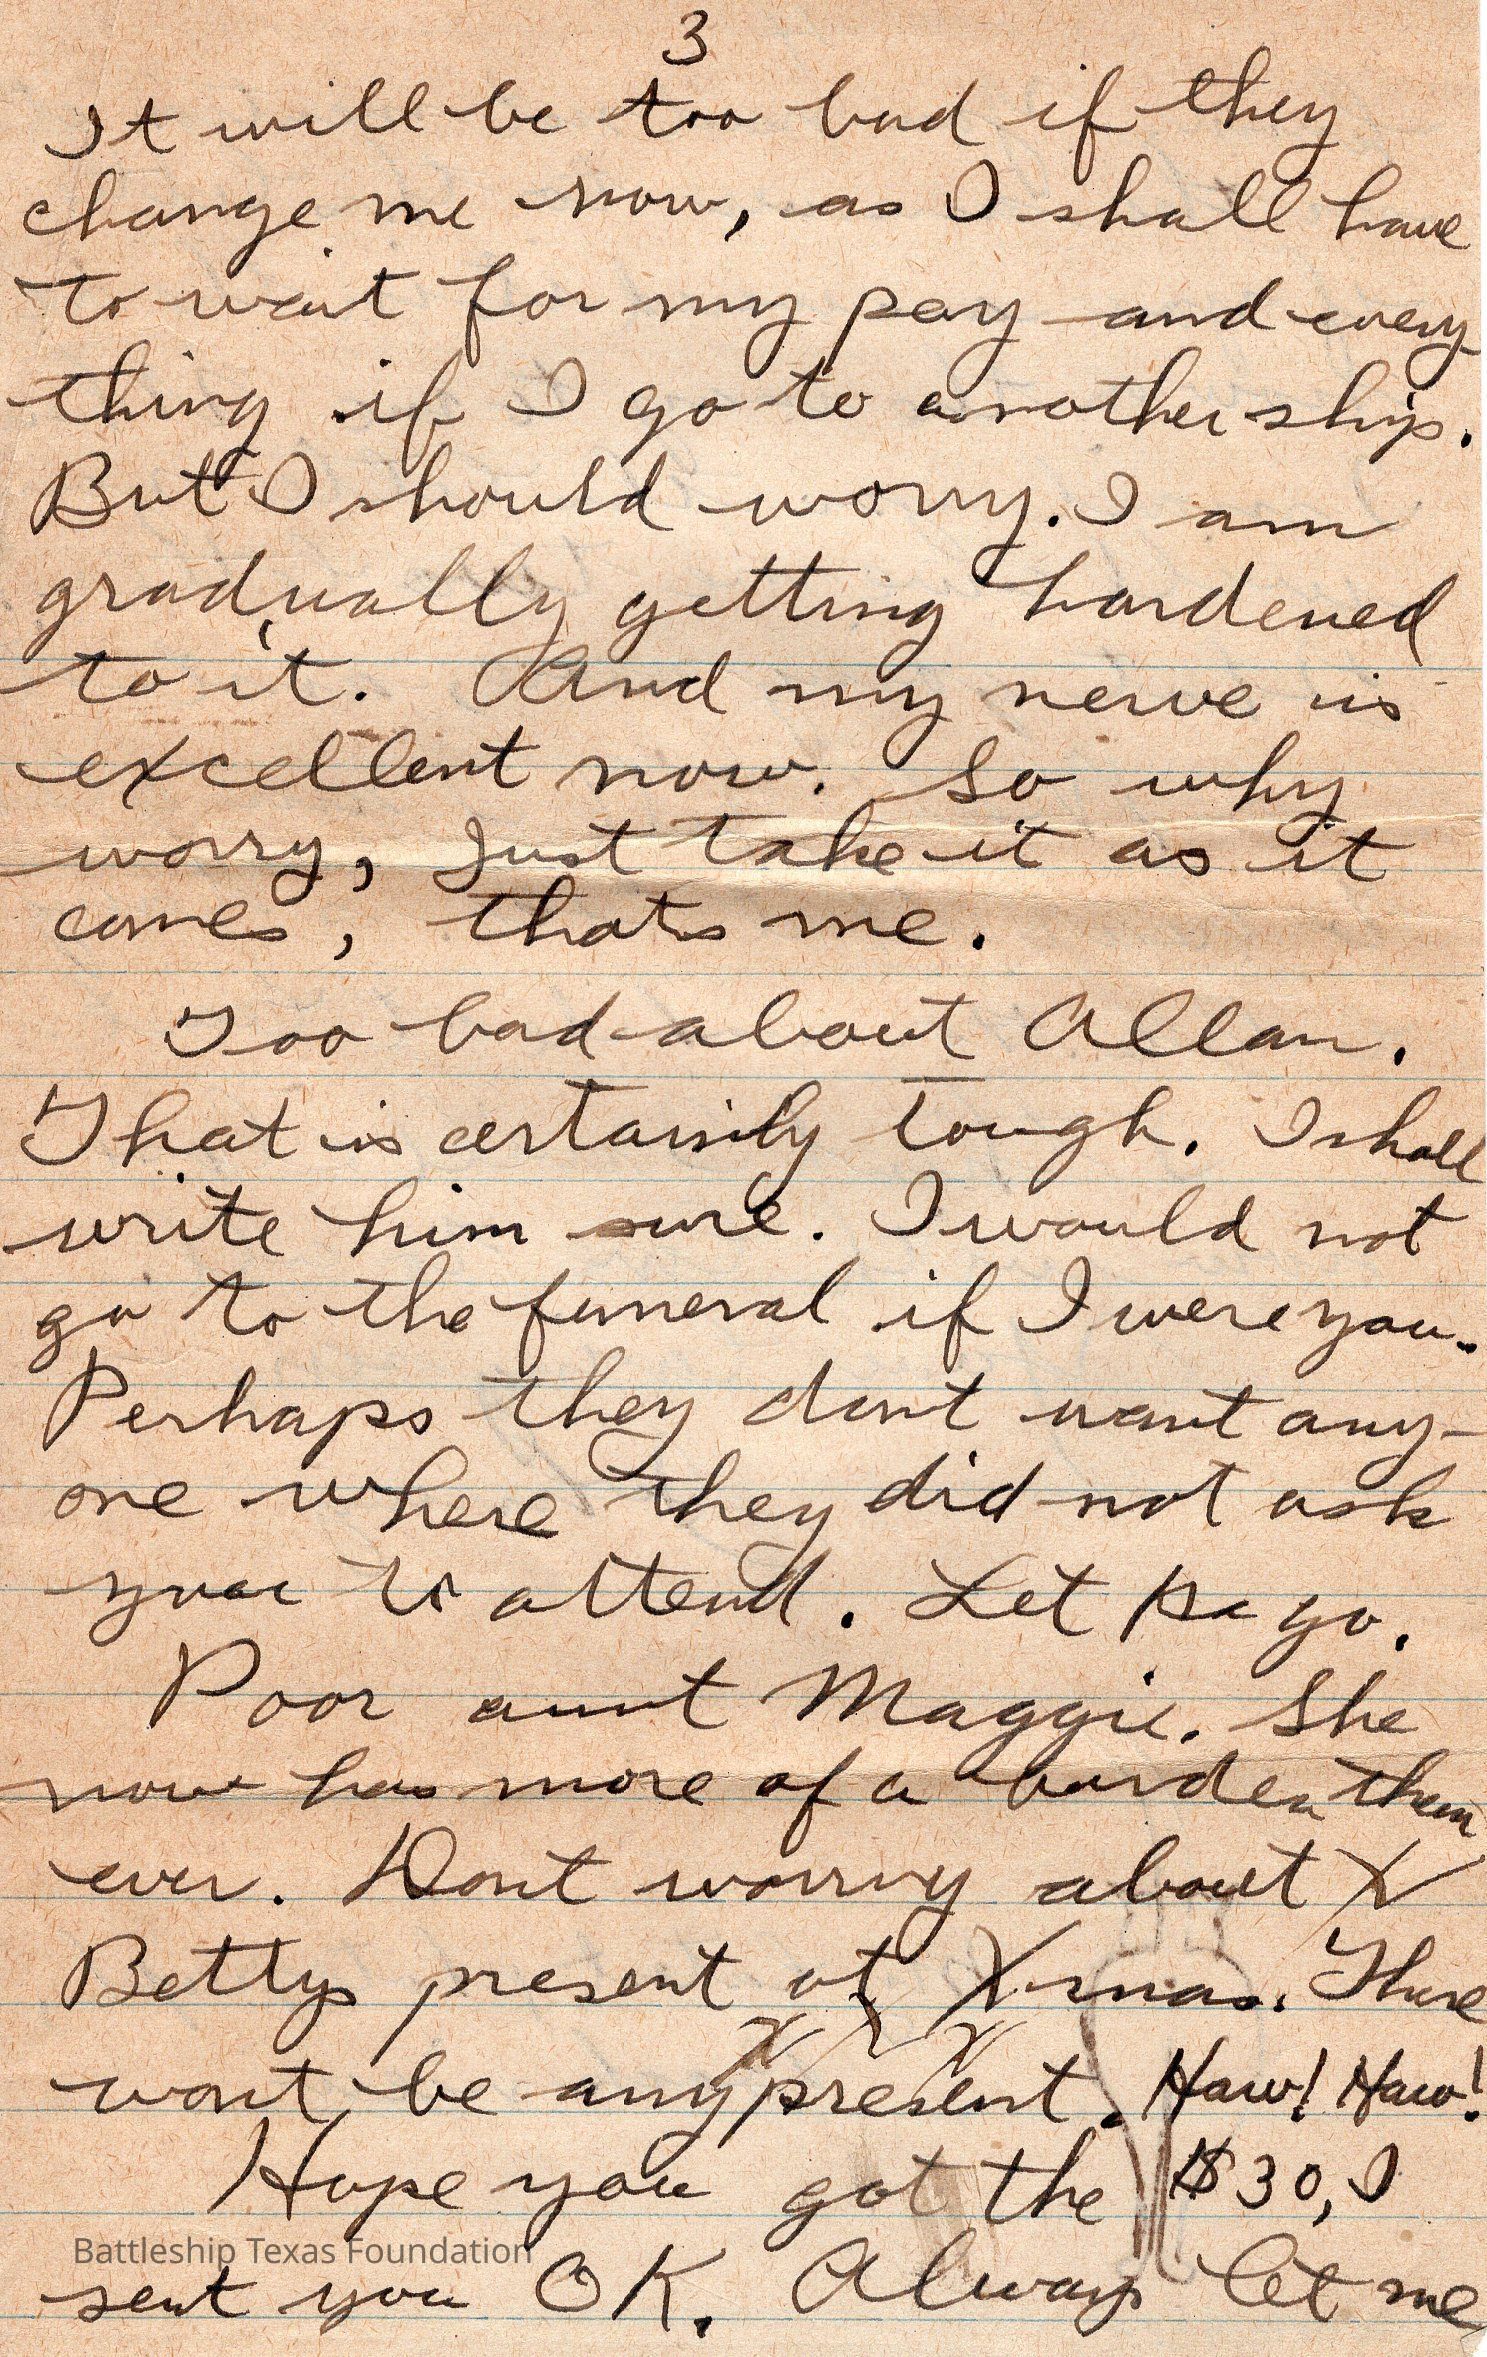 3
It will be too bad if they
change me now, as I shall have
to wait for my pay and every
thing if I go to another ship.
But I should worry. I am
gradually getting hardened
to it. And my nerve is
excellent now. So why
worry, Just take it as it
comes, thats me.
Too bad about Allan.
That is certainly tough. I shall
write him sure. I would not
go to the funeral if I were you.
Perhaps they dont want any-
one where they did not ask
you to attend. Let go.
Poor aunt Maggie. She
now has more of a burden than
ever. Dont worry about X
Bettys present at X-mas. There
X X X
wont be any present. Haw! Haw!
Hope you got the $30, I
Battleship Texas Foundation
sent you OK. Always let me